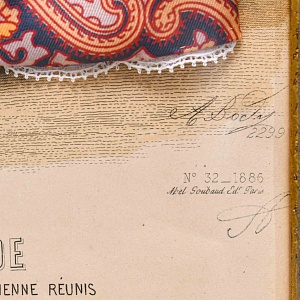 2299
Nº 32_1886
Abel Goubaud, Edr Paris
DE
IENNE RÉUNIS